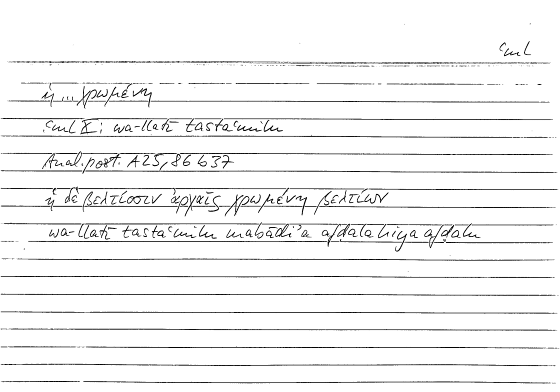 ʿml
ἡ ... χρωμένη
ʿml X; wa-llatī tastaʿmilu
Anal. post. A 25, 86 b 37
ἡ δὲ βελτίοσιν ἀρχαῖς χρωμένη βελτίων
wa-llatī tastaʿmilu mabādiʾa afḍala hiya afḍalu